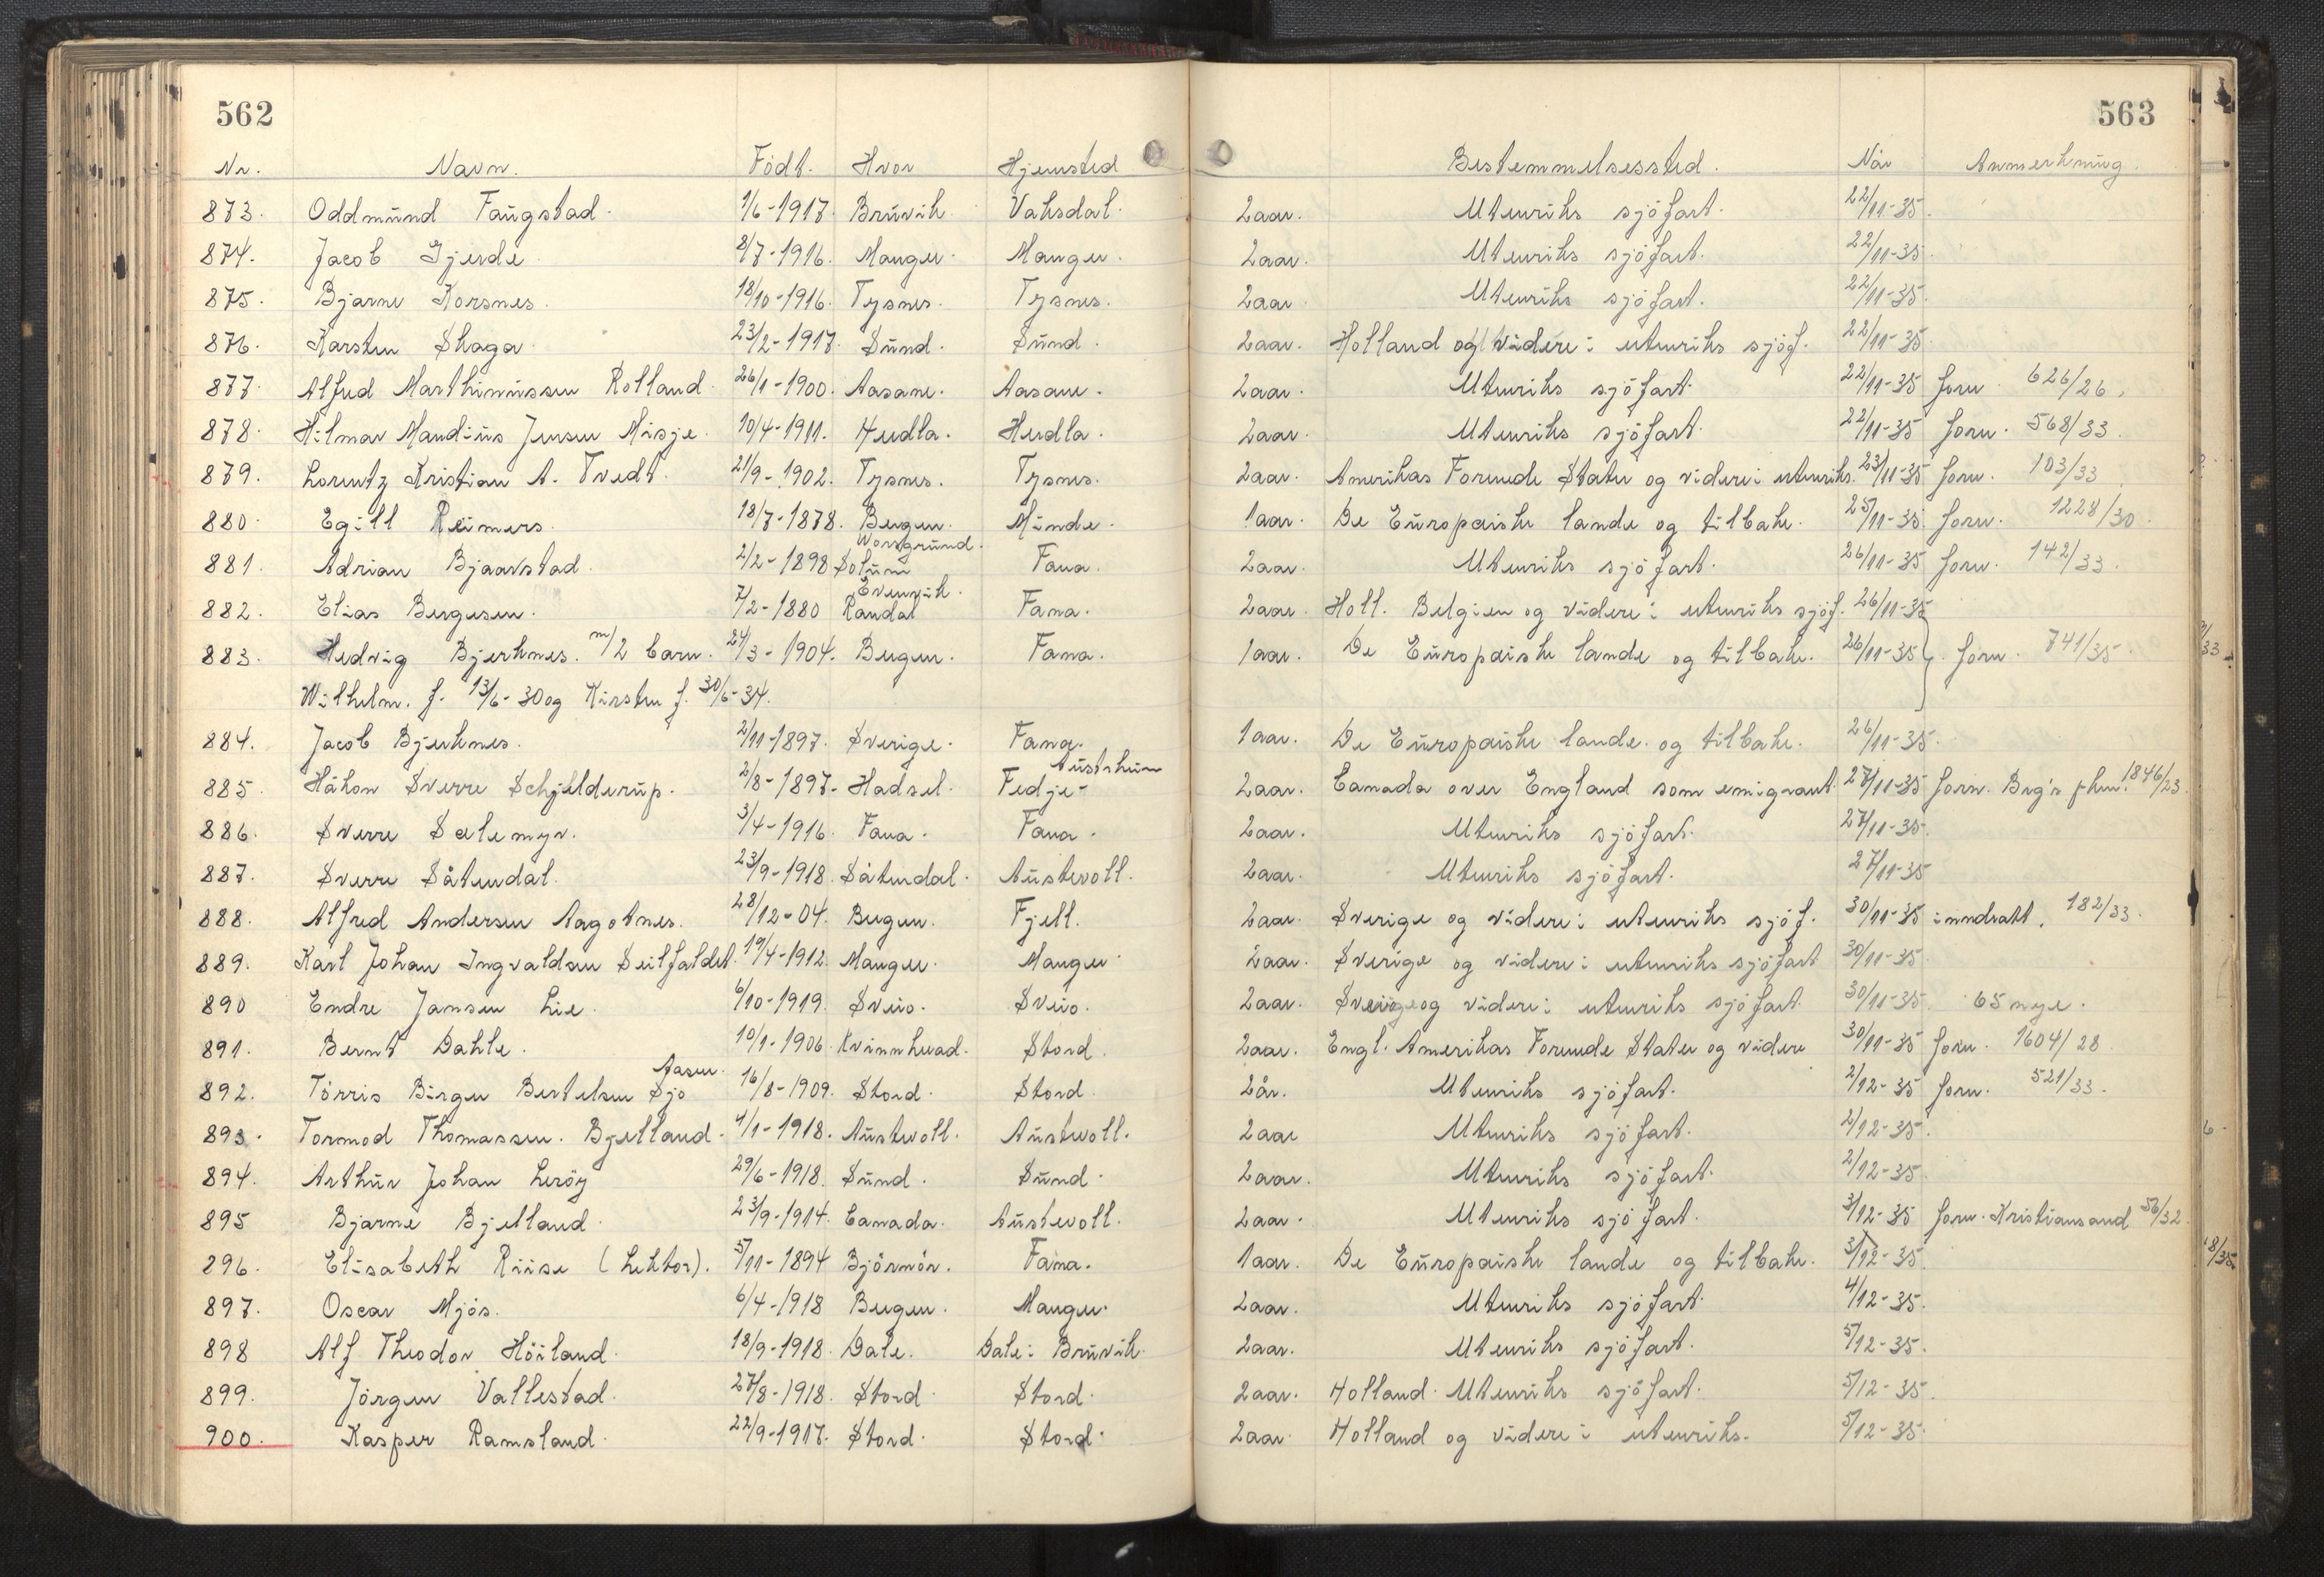 562
563
Nr. Navn. Födt. Hvor Hjemsted Bestemmelsessted. Når Anmerkning.
873. Oddmund Faugstad. 1/6-1917. Bruvik. Vaksdal. 2 aar. Utenriks sjöfart. 22/11-35.
874. Jacob Gjerde 8/7-1916. Manger. Manger. 2 aar. Utenriks sjöfart. 22/11-35.
875. Bjarne Korsnes. 18/10-1916. Tysnes. Tysnes. 2 aar. Utenriks sjöfart. 22/11-35.
876. Karsten Skaga. 23/2-1917. Sund. Sund. 2 aar. Holland og videre i utenriks sjöf. 22/11-35.
877. Alfred Marthinussen Rolland. 26/1-1900. Aasane. Aasane. 2 aar. Utenriks sjöfart. 22/11-35 forn. 626/26.
878. Hilmar Mandius Jensen Misje. 10/4-1911. Herdla. Herdla. 2 aar. Utenriks sjöfart. 22/11-35 forn. 568/33.
879. Lorentz Kristian A. Tvedt. 21/9-1902. Tysnes. Tysnes. 2 aar. Amerikas Forenede Stater og videre i utenriks. 23/11-35 forn. 103/33
880. Egill Reimers. 18/7-1878. Bergen. Minde. 1 aar. De Europæiske lande og tilbake. 25/11-35. forn. 1228/30.
Worsgrund.
881. Adrian Bjaavstad. 2/2-1898 Solum Fana. 2 aar. Utenriks sjöfart. 26/11-35 forn. 142/33.
Evenvik.
882. Elias Bergesen. 7/2-1880 Randal Fana. 2 aar. Holl. Belgien og videre i utenriks sjöf. 26/11-35
883. Hedvig Bjerknes. m/2 barn. 24/3-1904. Bergen. Fana. 1 aar. De Europæiske lande og tilbake. 26/11-35 forn. 741/35.
Wilhelm. f. 13/6-30 og Kirsten f. 30/6-34.
884. Jacob Bjerknes. 2/11-1897. Sverige. Fana. 1 aar. De Europæiske lande og tilbake. 26/11-35.
Austrheim
885. Håkon Sverre Schjelderup. 2/8-1897. Hadsel. Fedje- 2 aar. Canada over England som emigrant. 27/11-35 forn. Brg'n pkm. 1846/23.
886. Sverre Sælemyr. 3/4-1916. Fana. Fana. 2 aar. Utenriks sjöfart. 27/11-35.
887. Sverre Såtendal. 23/9-1918. Såtendal. Austevoll. 2 aar. Utenriks sjöfart. 27/11-35
888. Alfred Andersen Aagotnes. 28/12-04. Bergen. Fjell. 2 aar. Sverige og videre i utenriks sjöf. 30/11-35 inndratt. 182/33.
889. Karl Johan Ingvaldsen Seilfaldet. 19/4-1912. Manger. Manger. 2 aar. Sverige og videre i utenriks sjöfart 30/11-35.
890 Endre Jansen Lie. 6/10-1919. Sveio. Sveio. 2 aar. Sverige og videre i utenriks sjöfart. 30/11-35. 65 nye.
891. Bernt Dahle. 10/1-1906. Kvinnherad. Stord. 2 aar. Engl. Amerikas Forenede Stater og videre 30/11-35 forn. 1604/28
Aasen.
892. Törris Birger Bertelsen Sjo 16/8-1909. Stord. Stord. 2 år. Utenriks sjöfart. 2/12-35 forn. 521/33.
893. Tormod Thomassen. Bjelland. 4/1-1918. Austevoll. Austevoll. 2 aar Utenriks sjöfart. 2/12-35.
894. Arthur Johan Leröy 29/6-1918. Sund. Sund. 2 aar. Utenriks sjöfart. 2/12-35.
895 Bjarne Bjelland. 23/9-1914. Canada. Austevoll. 2 aar. Utenriks sjöfart. 3/12-35 forn. Kristiansand 56/32.
296. Elisabeth Riise (Lektor). 5/11-1894 Björnör. Fana. 1 aar. De Europæiske lande og tilbake. 3/12-35.
897. Oscar Mjös. 6/4-1918 Bergen. Manger. 2 aar. Utenriks sjöfart. 4/12-35.
898 Alf Theodor Höiland. 18/9-1918. Dale. Dale i Bruvik. 2 aar. Utenriks sjöfart. 5/12-35.
899. Jörgen Vallestad. 27/8-1918. Stord. Stord. 2 aar. Holland. Utenriks sjöfart. 5/12-35.
900. Kasper Ramsland. 22/9-1917. Stord. Stord. 2 aar. Holland og videre i utenriks. 5/12-35.